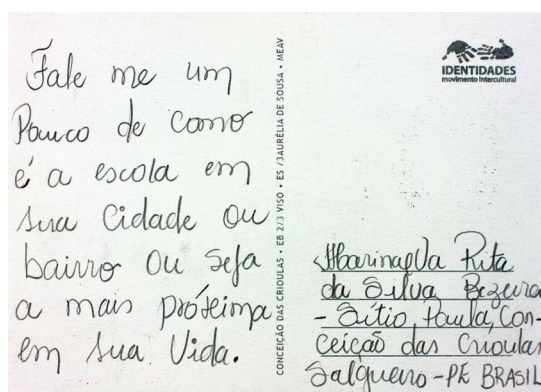 Fale me um
Pouco de como
é a escola em
sua Cidade ou
bairro ou seja
a mais próteima
em sua Vida.
CONCEIÇÃO DAS CRIOULAS • EB 2/3 VISO • ES /3AURÉLIA DE SOUSA • MEAV
IDENTIDADES
movimento intercultural
Rita
da Silva Bezerra
- Sítio Paula, Con-
ceição das Crioulas
Salgueiro - PE BRASIL